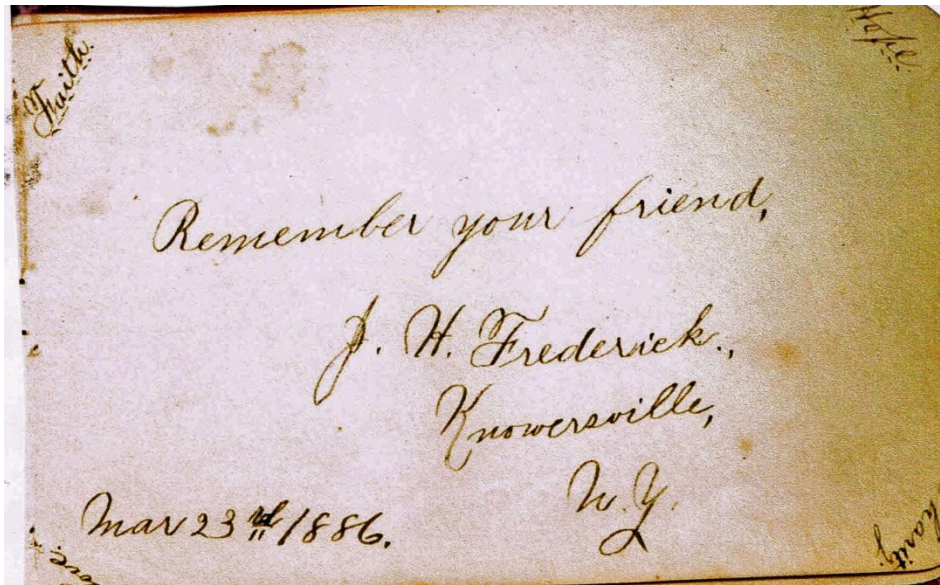 Faith.
Hope.
Remember your friend,
J. H. Frederick.,
Knowersville,
N. Y.
Mar 23rd 1886.